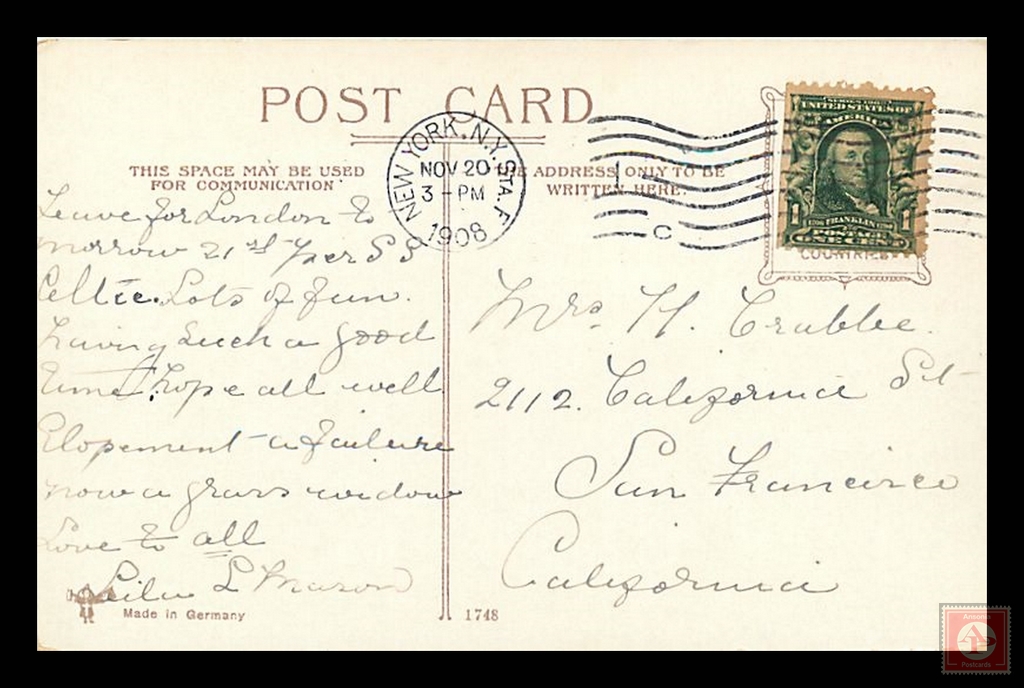 POST CARD
THIS SPACE MAY BE USED
FOR COMMUNICATION
THE ADDRESS ONLY TO BE
WRITTEN HERE.
NEW YORK, N.Y. STA. F
NOV 20
3 - PM
1908
C
UNITED STATES OF
AMERICA
1 FRANKLIN 1
COUNTRIES
Leave for London to
morrow 21st per S S
Celtic. Lots of fun.
having such a good
time. hope all well
Elopement a failure
now a grass widow
Love to all
Leila L Mason
Mrs. H. Crabbe.
2112. California St
San Francisco
California
Made in Germany
1748
Postcards